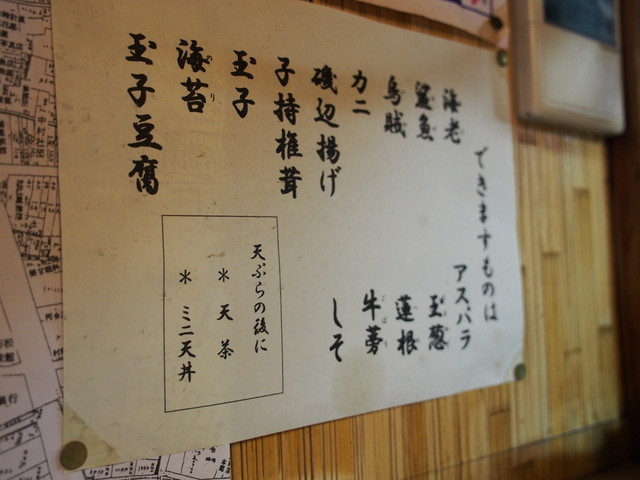 できますものは
海老
烏賊
カニ
磯辺揚げ
子持椎茸
玉子
海苔
玉子豆腐
アスパラ
玉葱
蓮根
牛蒡
しそ
天ぷらの後に
＊ 天茶
＊ ミニ天丼